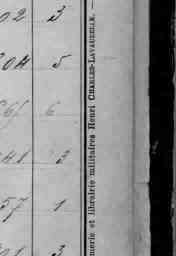 02 3
04 5
66 6
41 3
57 1
01 3
merie et librairie militaires Henri CHARLES-LAVAUZELLE. —